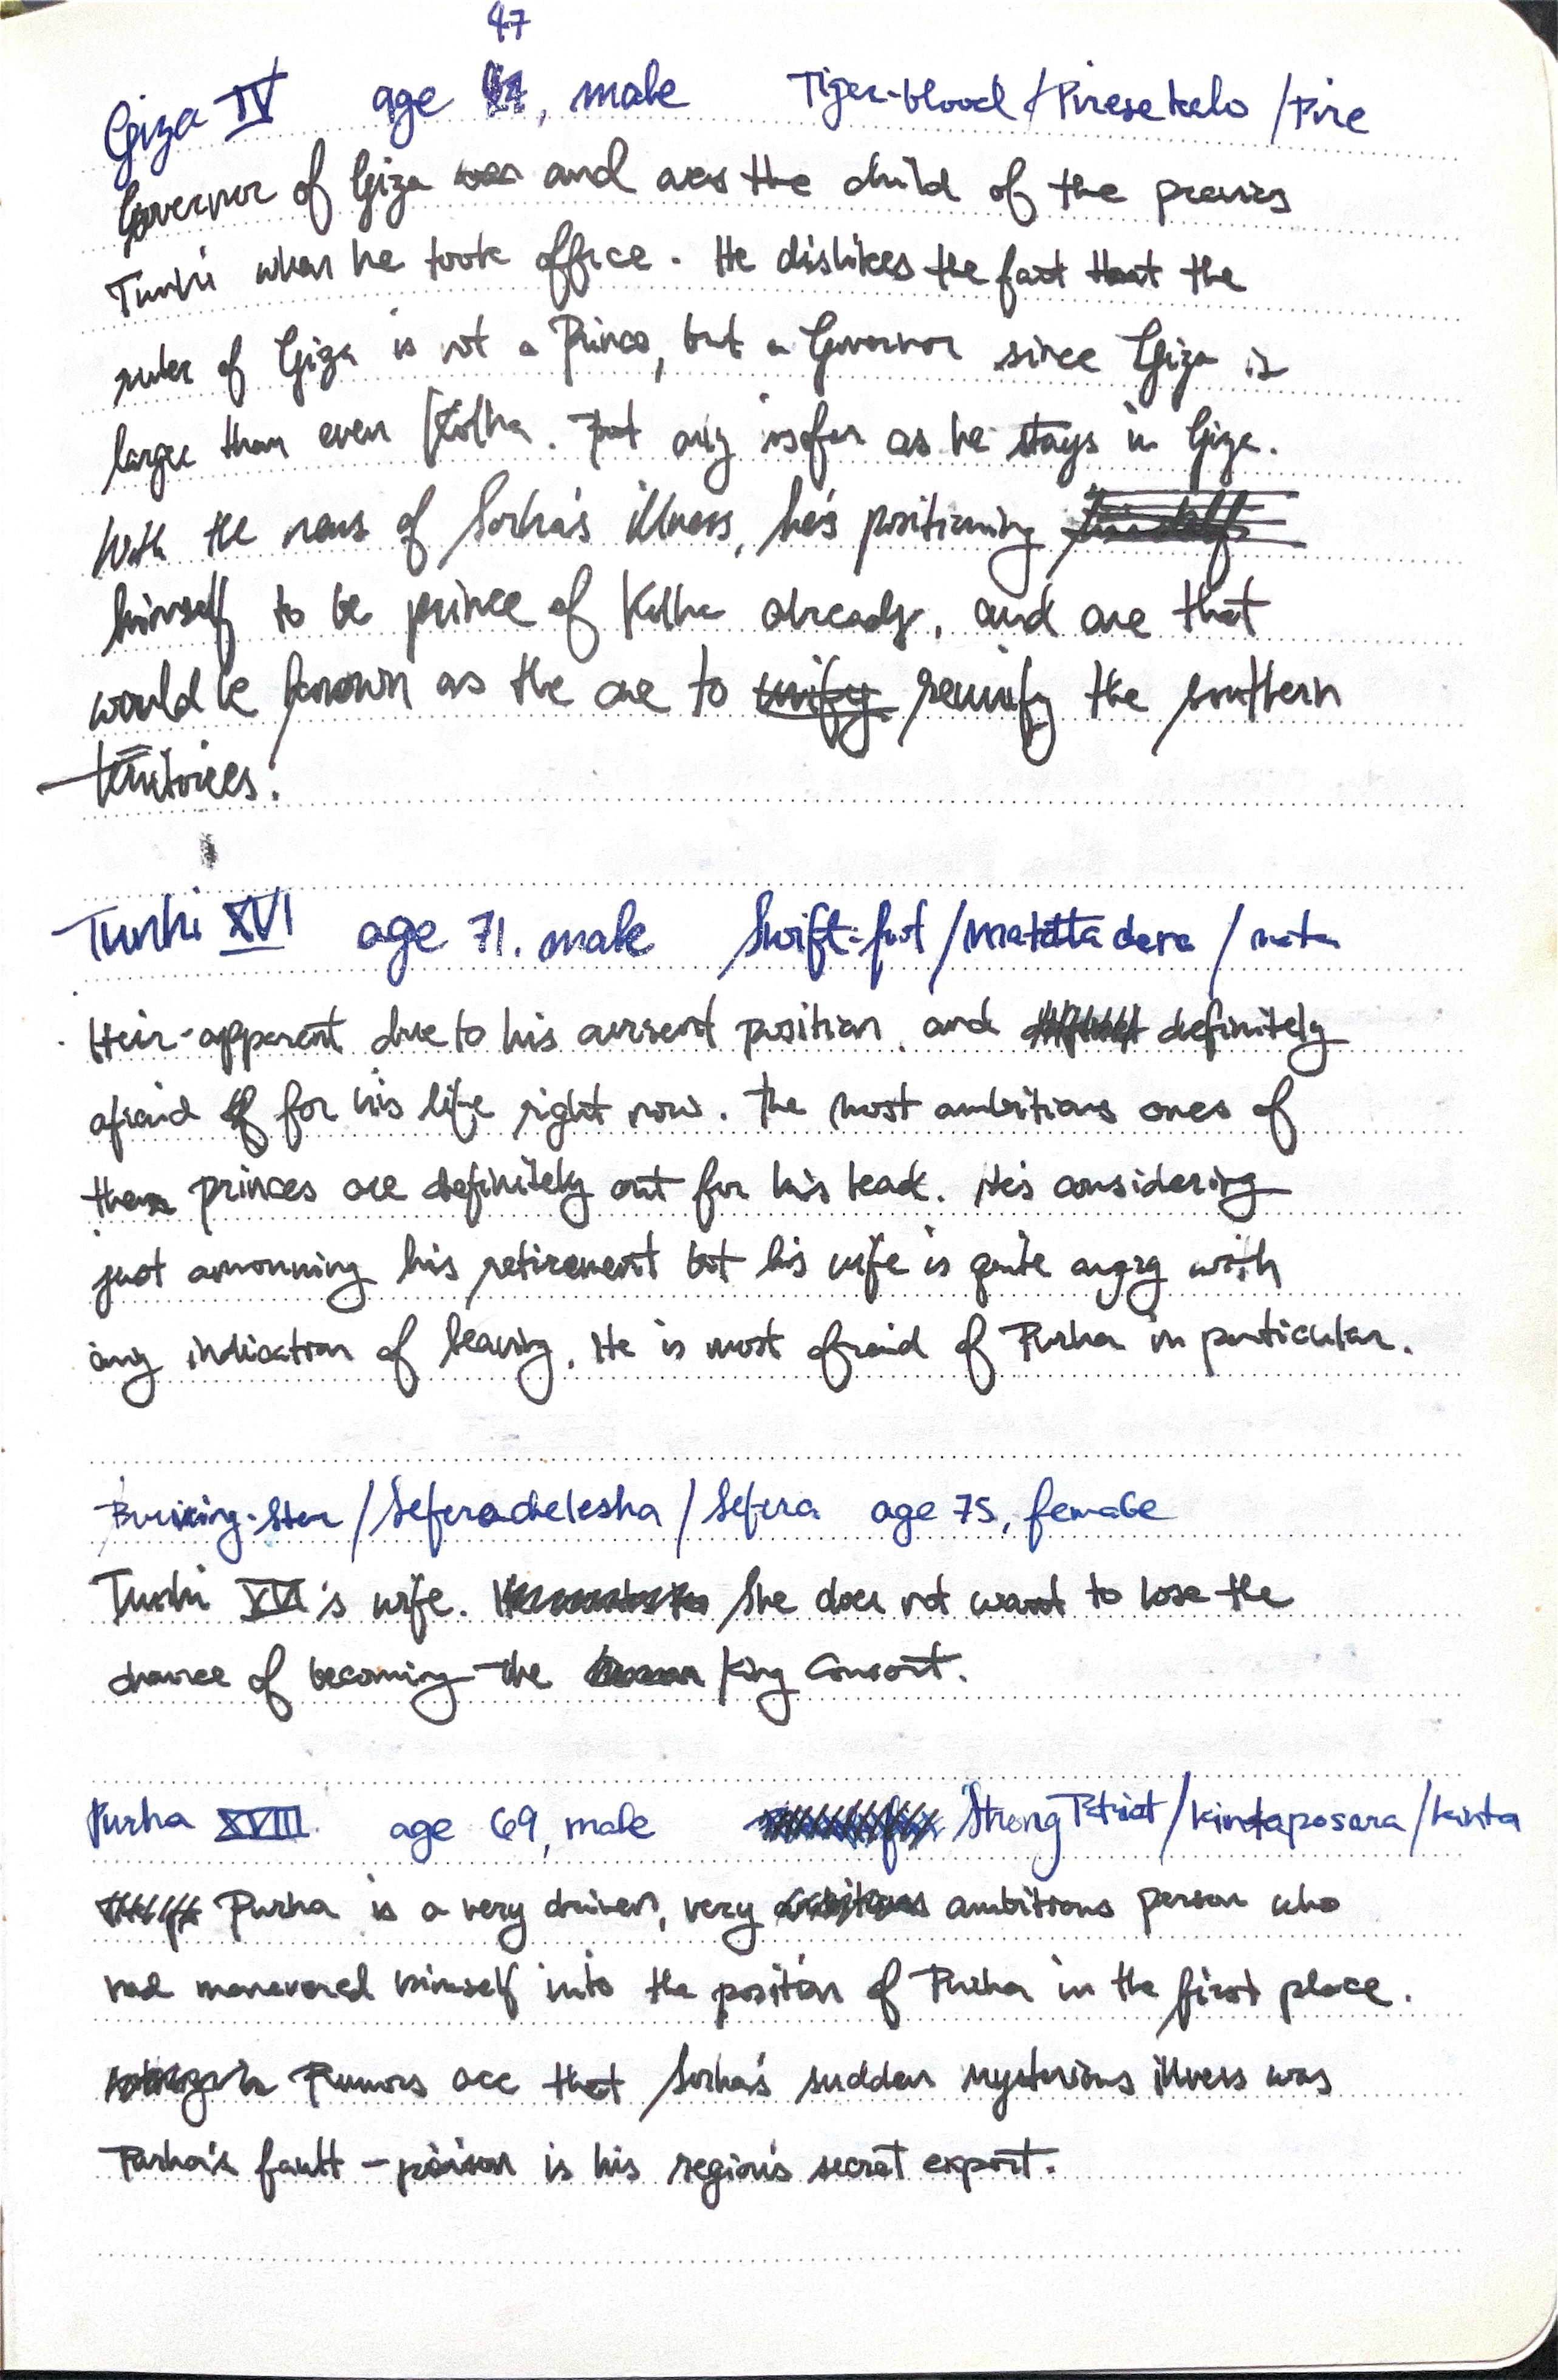 47
Giza IV age, male Tiger-blood / Piresekelo / Pire
Governor of Giza and was the child of the previos
Turhi when he took office. He dislikes the fact that the
ruler of Giza is not a Prince, but a Governor since Giza is
larger than even Kolha. But only insofar as he stays in Giza.
With the news of Sorha's illness, he's positioning
himself to be prince of Kolha already, and one that
would be known as the one to unify reunify the southern
territories.
Turhi XVI age 71, male Swift-foot / matattadera / mata
Heir-apparent due to his current position, and definitely
afraid for his life right now. The most ambitious ones of
them princes are definitely out for his head. He's considering
just announcing his retirement but his wife is quite angry with
any indication of leaving. He is most afraid of Purha in particular.
Burning-Star / Seferadelesha / Sefera age 75, female
Turhi XVI's wife. She does not want to lose the
chance of becoming the King Consort.
Purha XVIII age 69, male Strong Patriot / kintaposara / kinta
Purha is a very driven, very ambitious person who
had manevered himself into the position of Purha in the first place.
Rumors are that Sorha's sudden mysterious illness was
Purha's fault – poison is his region's secret export.